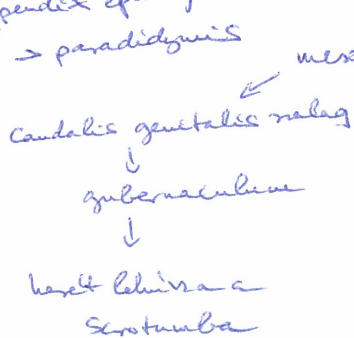 pendix ep
→ paradidymis
mes
caudalis genitalis szalag
↓
gubernaculum
↓
herét lehúzza a
scrotumba